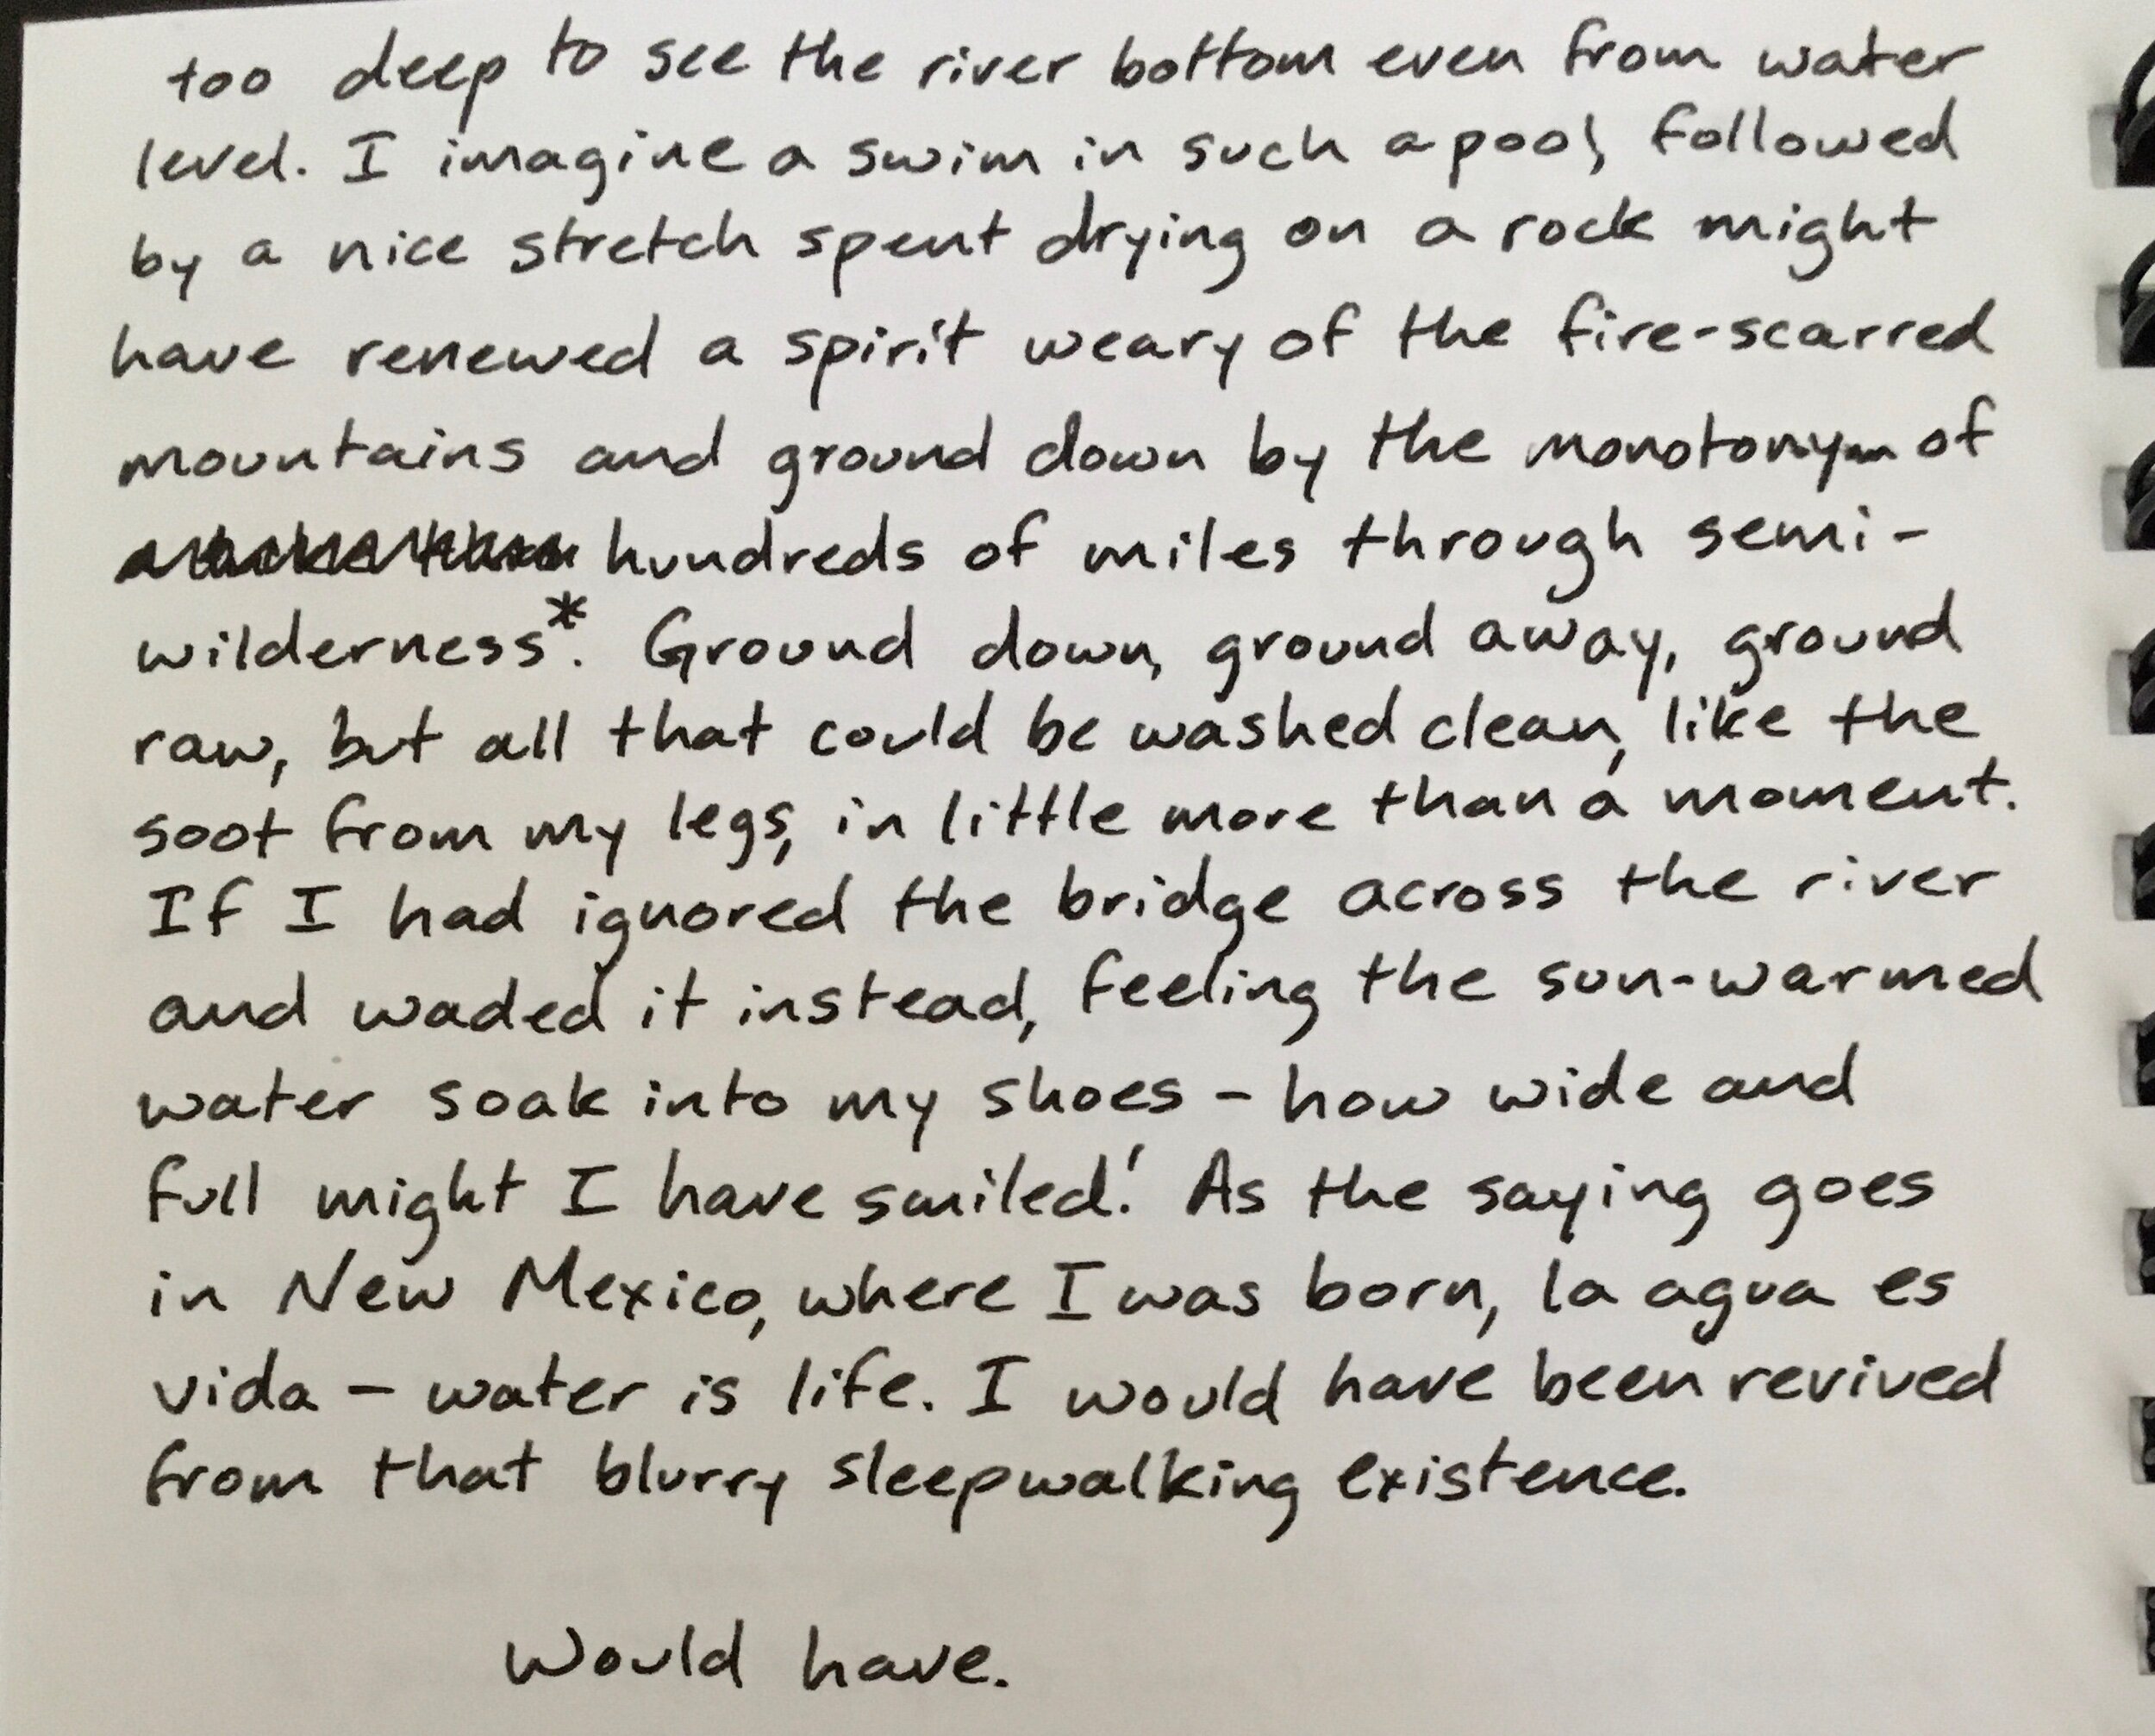 too deep to see the river bottom even from water
level. I imagine a swim in such a pool, followed
by a nice stretch spent drying on a rock might
have renewed a spirit weary of the fire-scarred
mountains and ground down by the monotony of
hundreds of miles through semi-
wilderness*. Ground down, ground away, ground
raw, but all that could be washed clean, like the
soot from my legs, in little more than a moment.
If I had ignored the bridge across the river
and waded it instead, feeling the sun-warmed
water soak into my shoes - how wide and
full might I have smiled! As the saying goes
in New Mexico, where I was born, la agua es
vida - water is life. I would have been revived
from that blurry sleepwalking existence.
Would have.